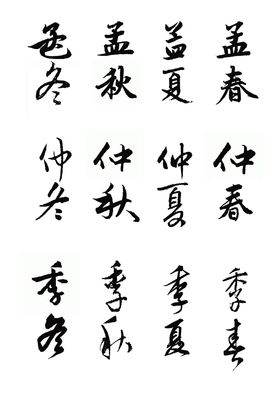 孟春
孟夏
孟秋
孟冬
仲春
仲夏
仲秋
仲冬
季春
季夏
季秋
季冬